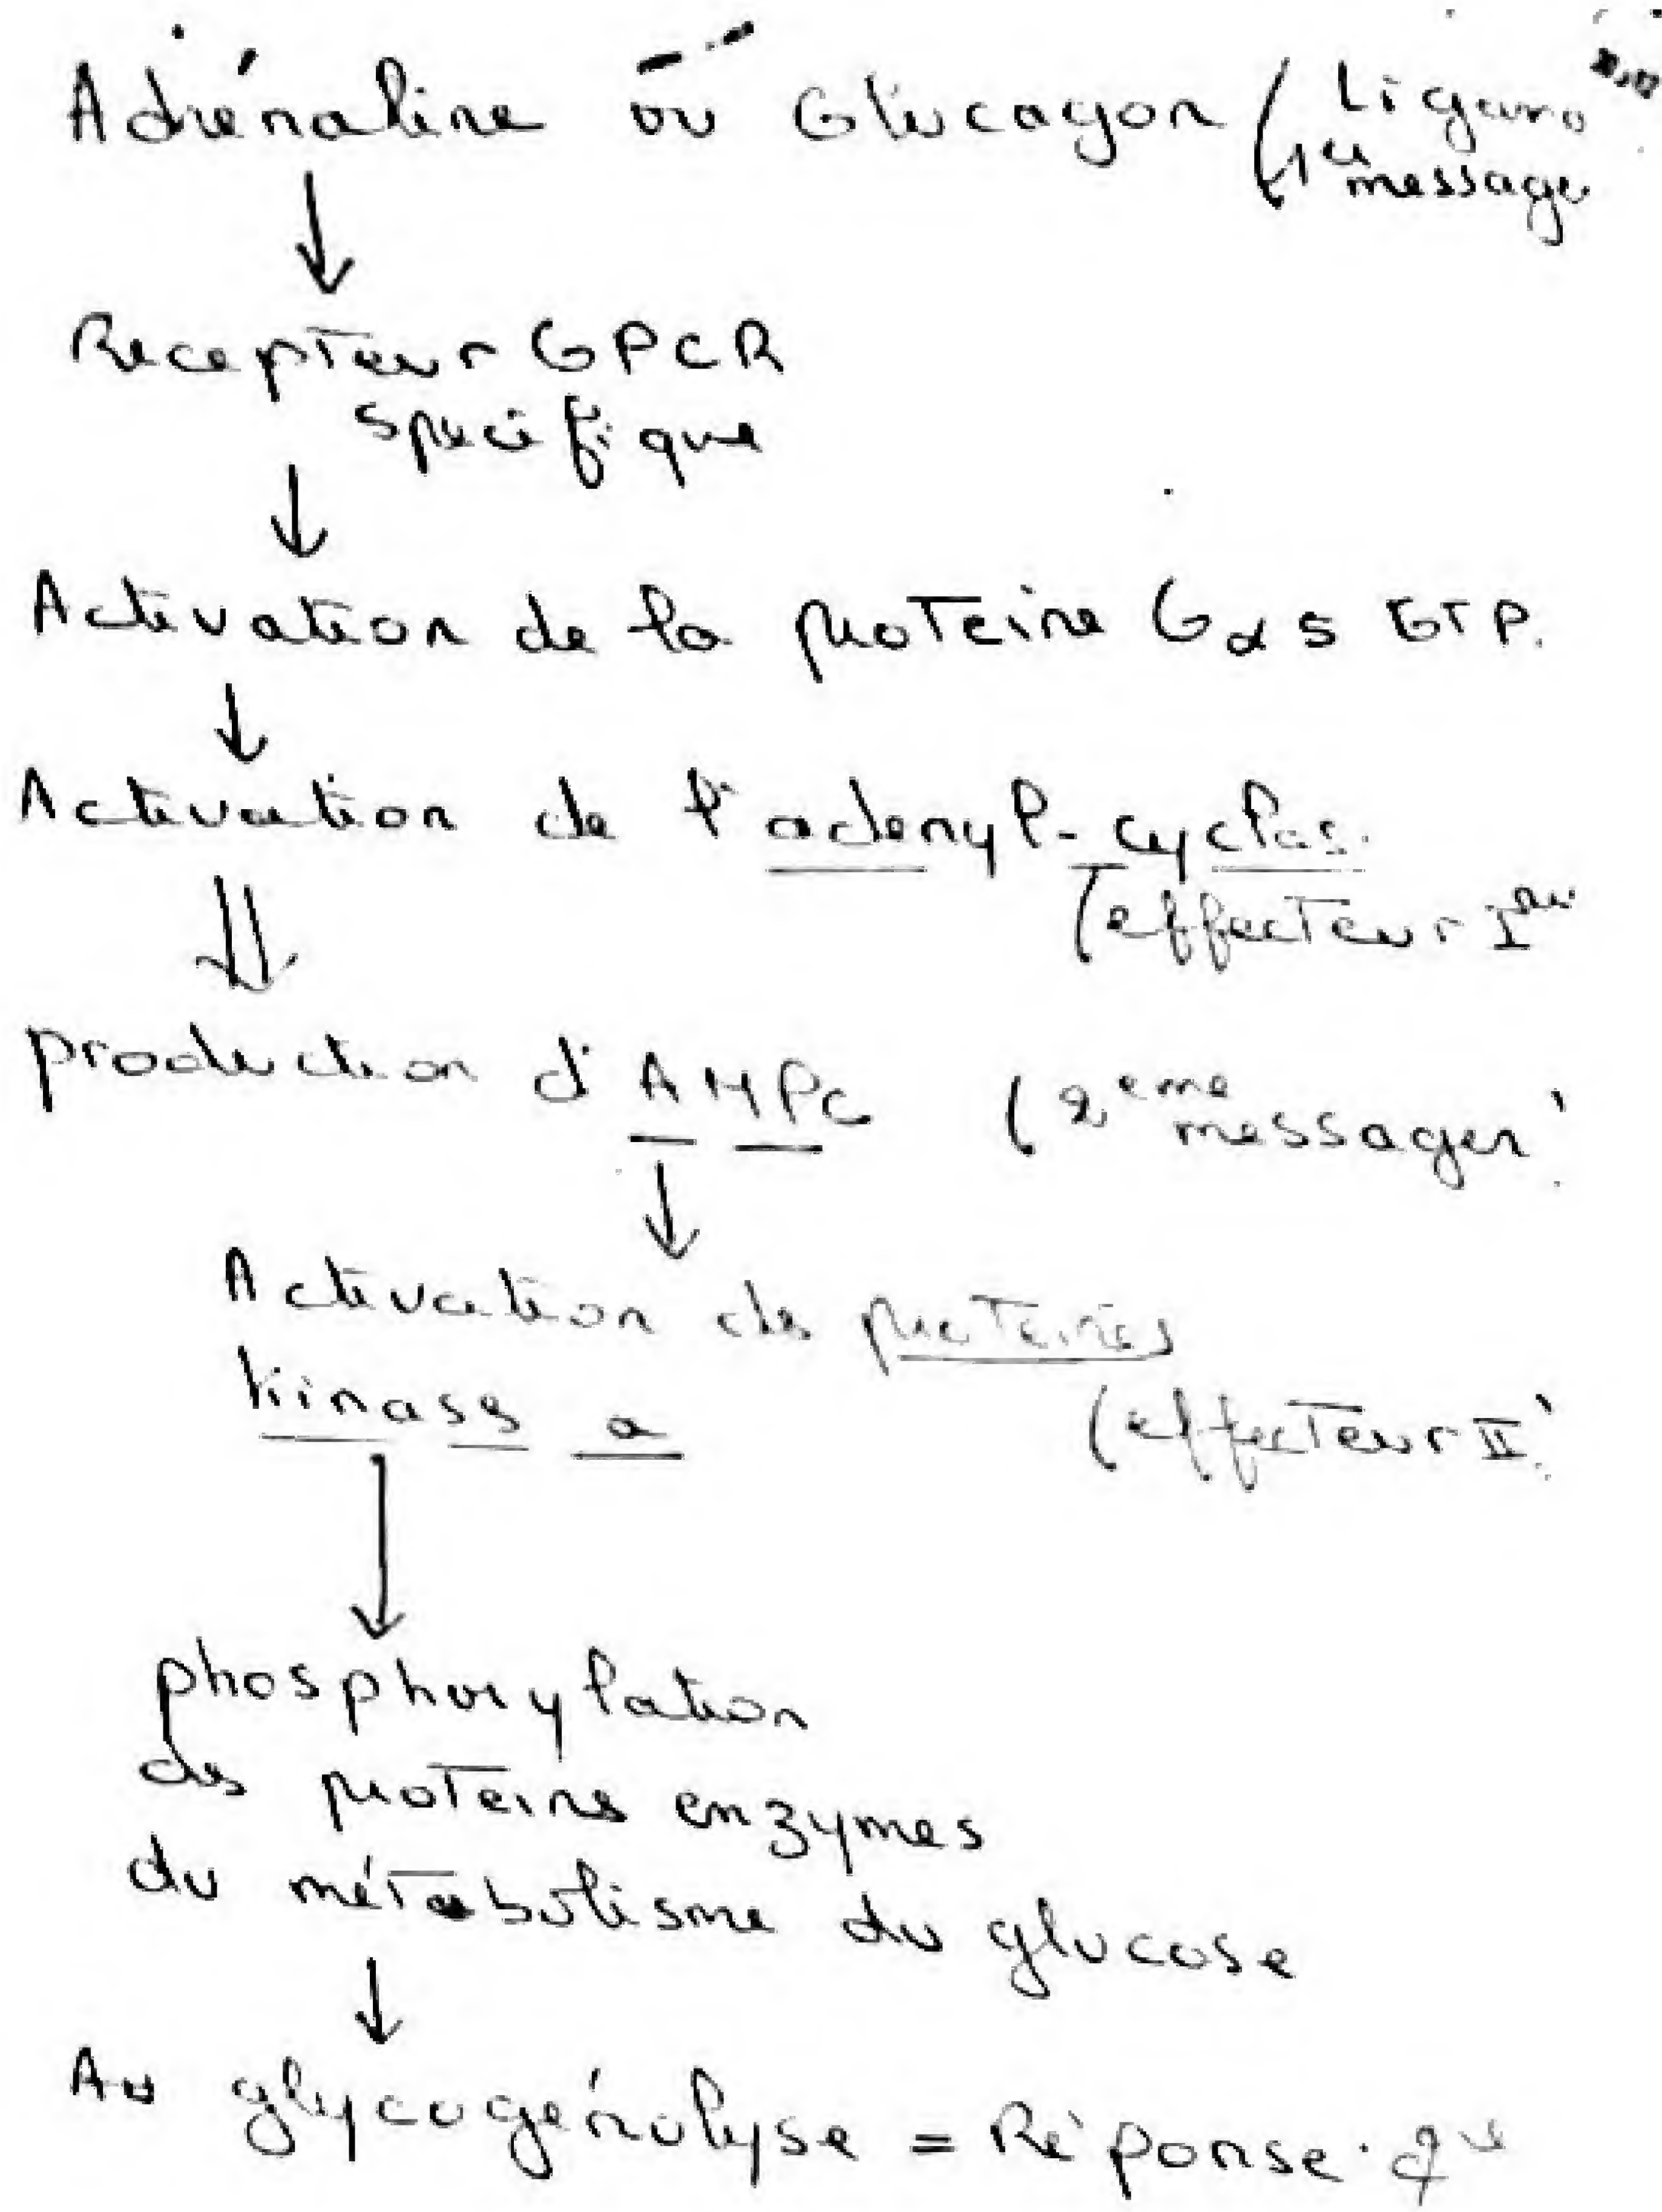 Adrénaline ou Glucagon (Ligand
1er message
Recepteur GPCR
specifique
Activation de la proteine Gαs GTP.
Activation de l'adenyl-cyclas.
(effecteur I
production d'AMPc (2eme
messager)
Activation des proteines
kinases a (effecteur II)
phosphorylation
des proteines enzymes
du métabolisme du glucose
glycogénolyse = Réponse